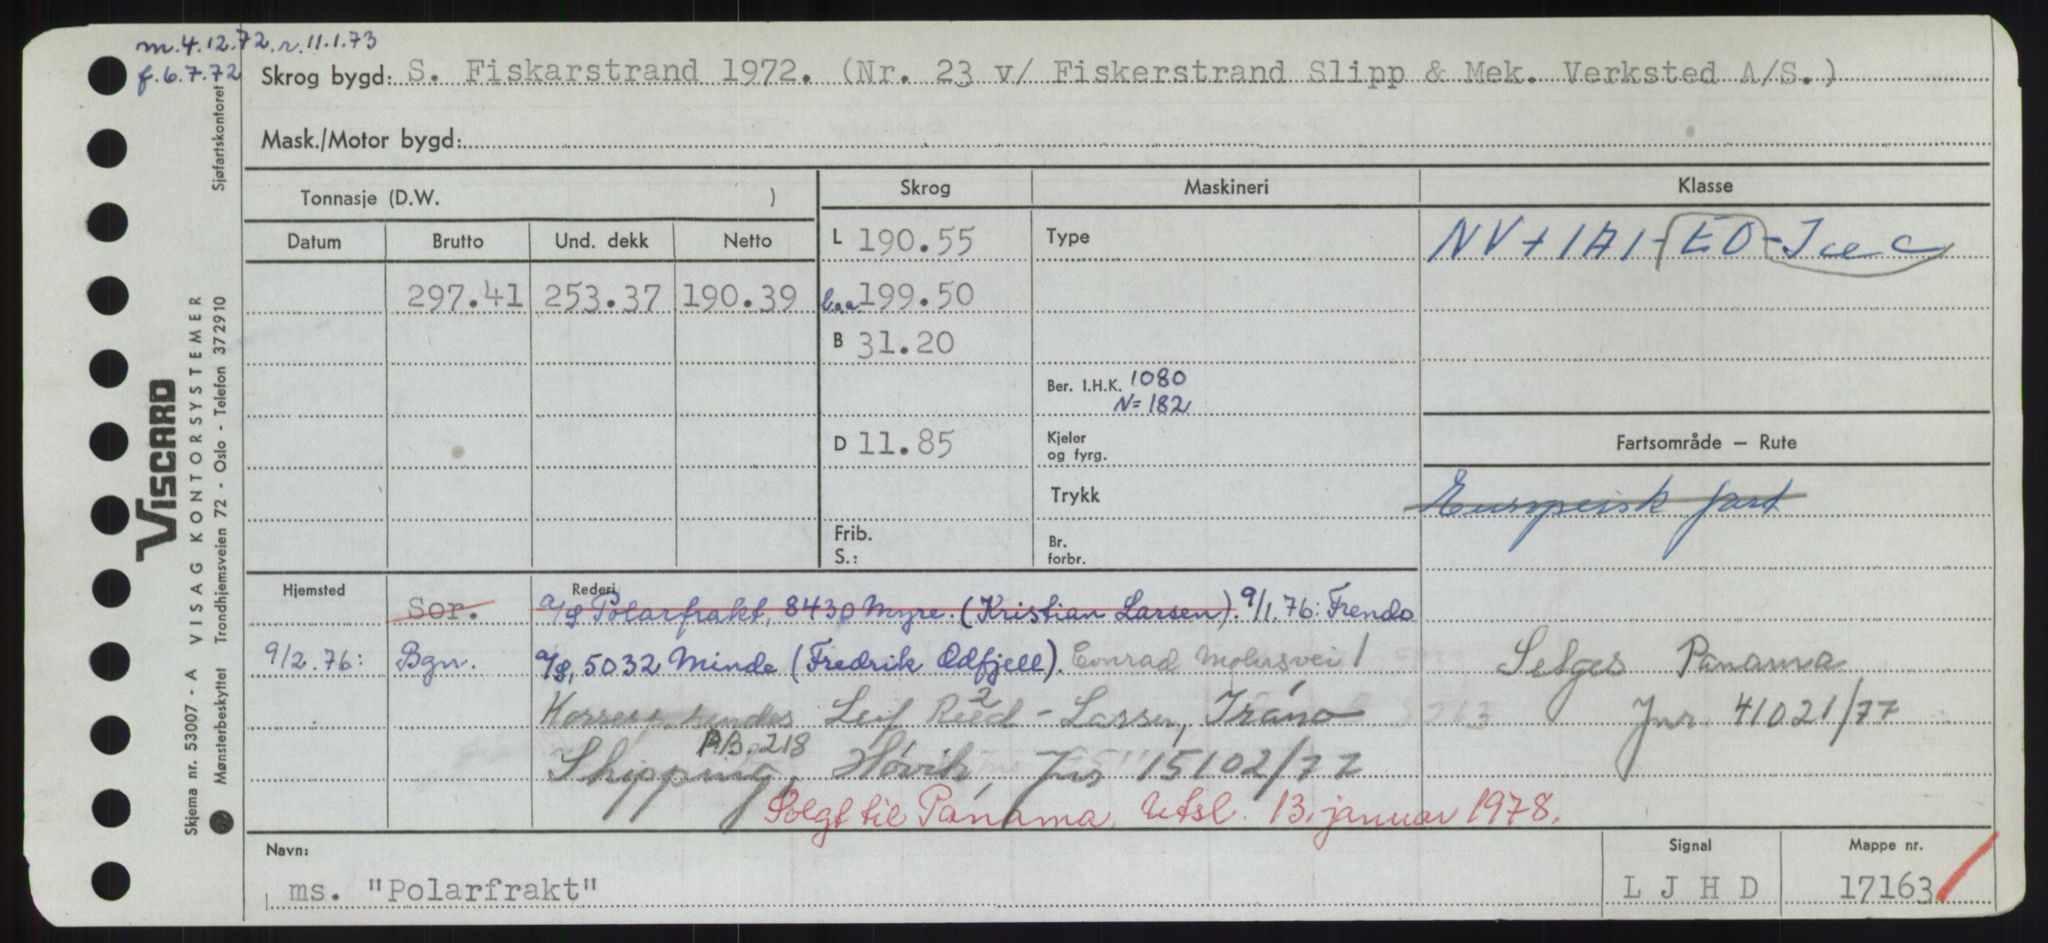 m. 4.12.72. r. 11.1.73
f. 6.7.72
Skrog bygd: S. Fiskarstrand 1972. (Nr. 23 v/ Fiskerstrand Slipp & Mek. Verksted A/S.)
Mask./Motor bygd:
Tonnasje (D.W. )
Skrog Maskineri Klasse
Datum Brutto Und. dekk Netto
L 190.55 Type NV+1A1-EO-Ice C
297.41 253.37 190.39 Loa 199.50
B 31.20
Ber. I.H.K. 1080
N=182
D 11.85 Kjeler og fyrg.
Fartsområde – Rute
Trykk Europeisk fart
Frib.
S.: Br. forbr.
Hjemsted Rederi
Sor. A/S Polarfrakt, 8430 Myre. (Kristian Larsen). 9/1.76: Frendo
9/2.76: Bgn. A/S, 5032 Minde (Fredrik Odfjell). Conrad Mohnsvei 1
Selges Panama
Jnr. 41021/77
Leif Reed - Larsen, Tráno
P.B. 218
Shipping, Høvik, Jnr 15102/77
Solgt til Panama. Utsl. 13. januar 1978.
Navn: Signal Mappe nr.
ms. "Polarfrakt" L J H D 17163
Skjema nr. 53007 - A VISAG KONTORSYSTEMER
Mønsterbeskyttet Trondhjemsveien 72 - Oslo - Telefon 372910
Sjøfartskontoret
VISCARD